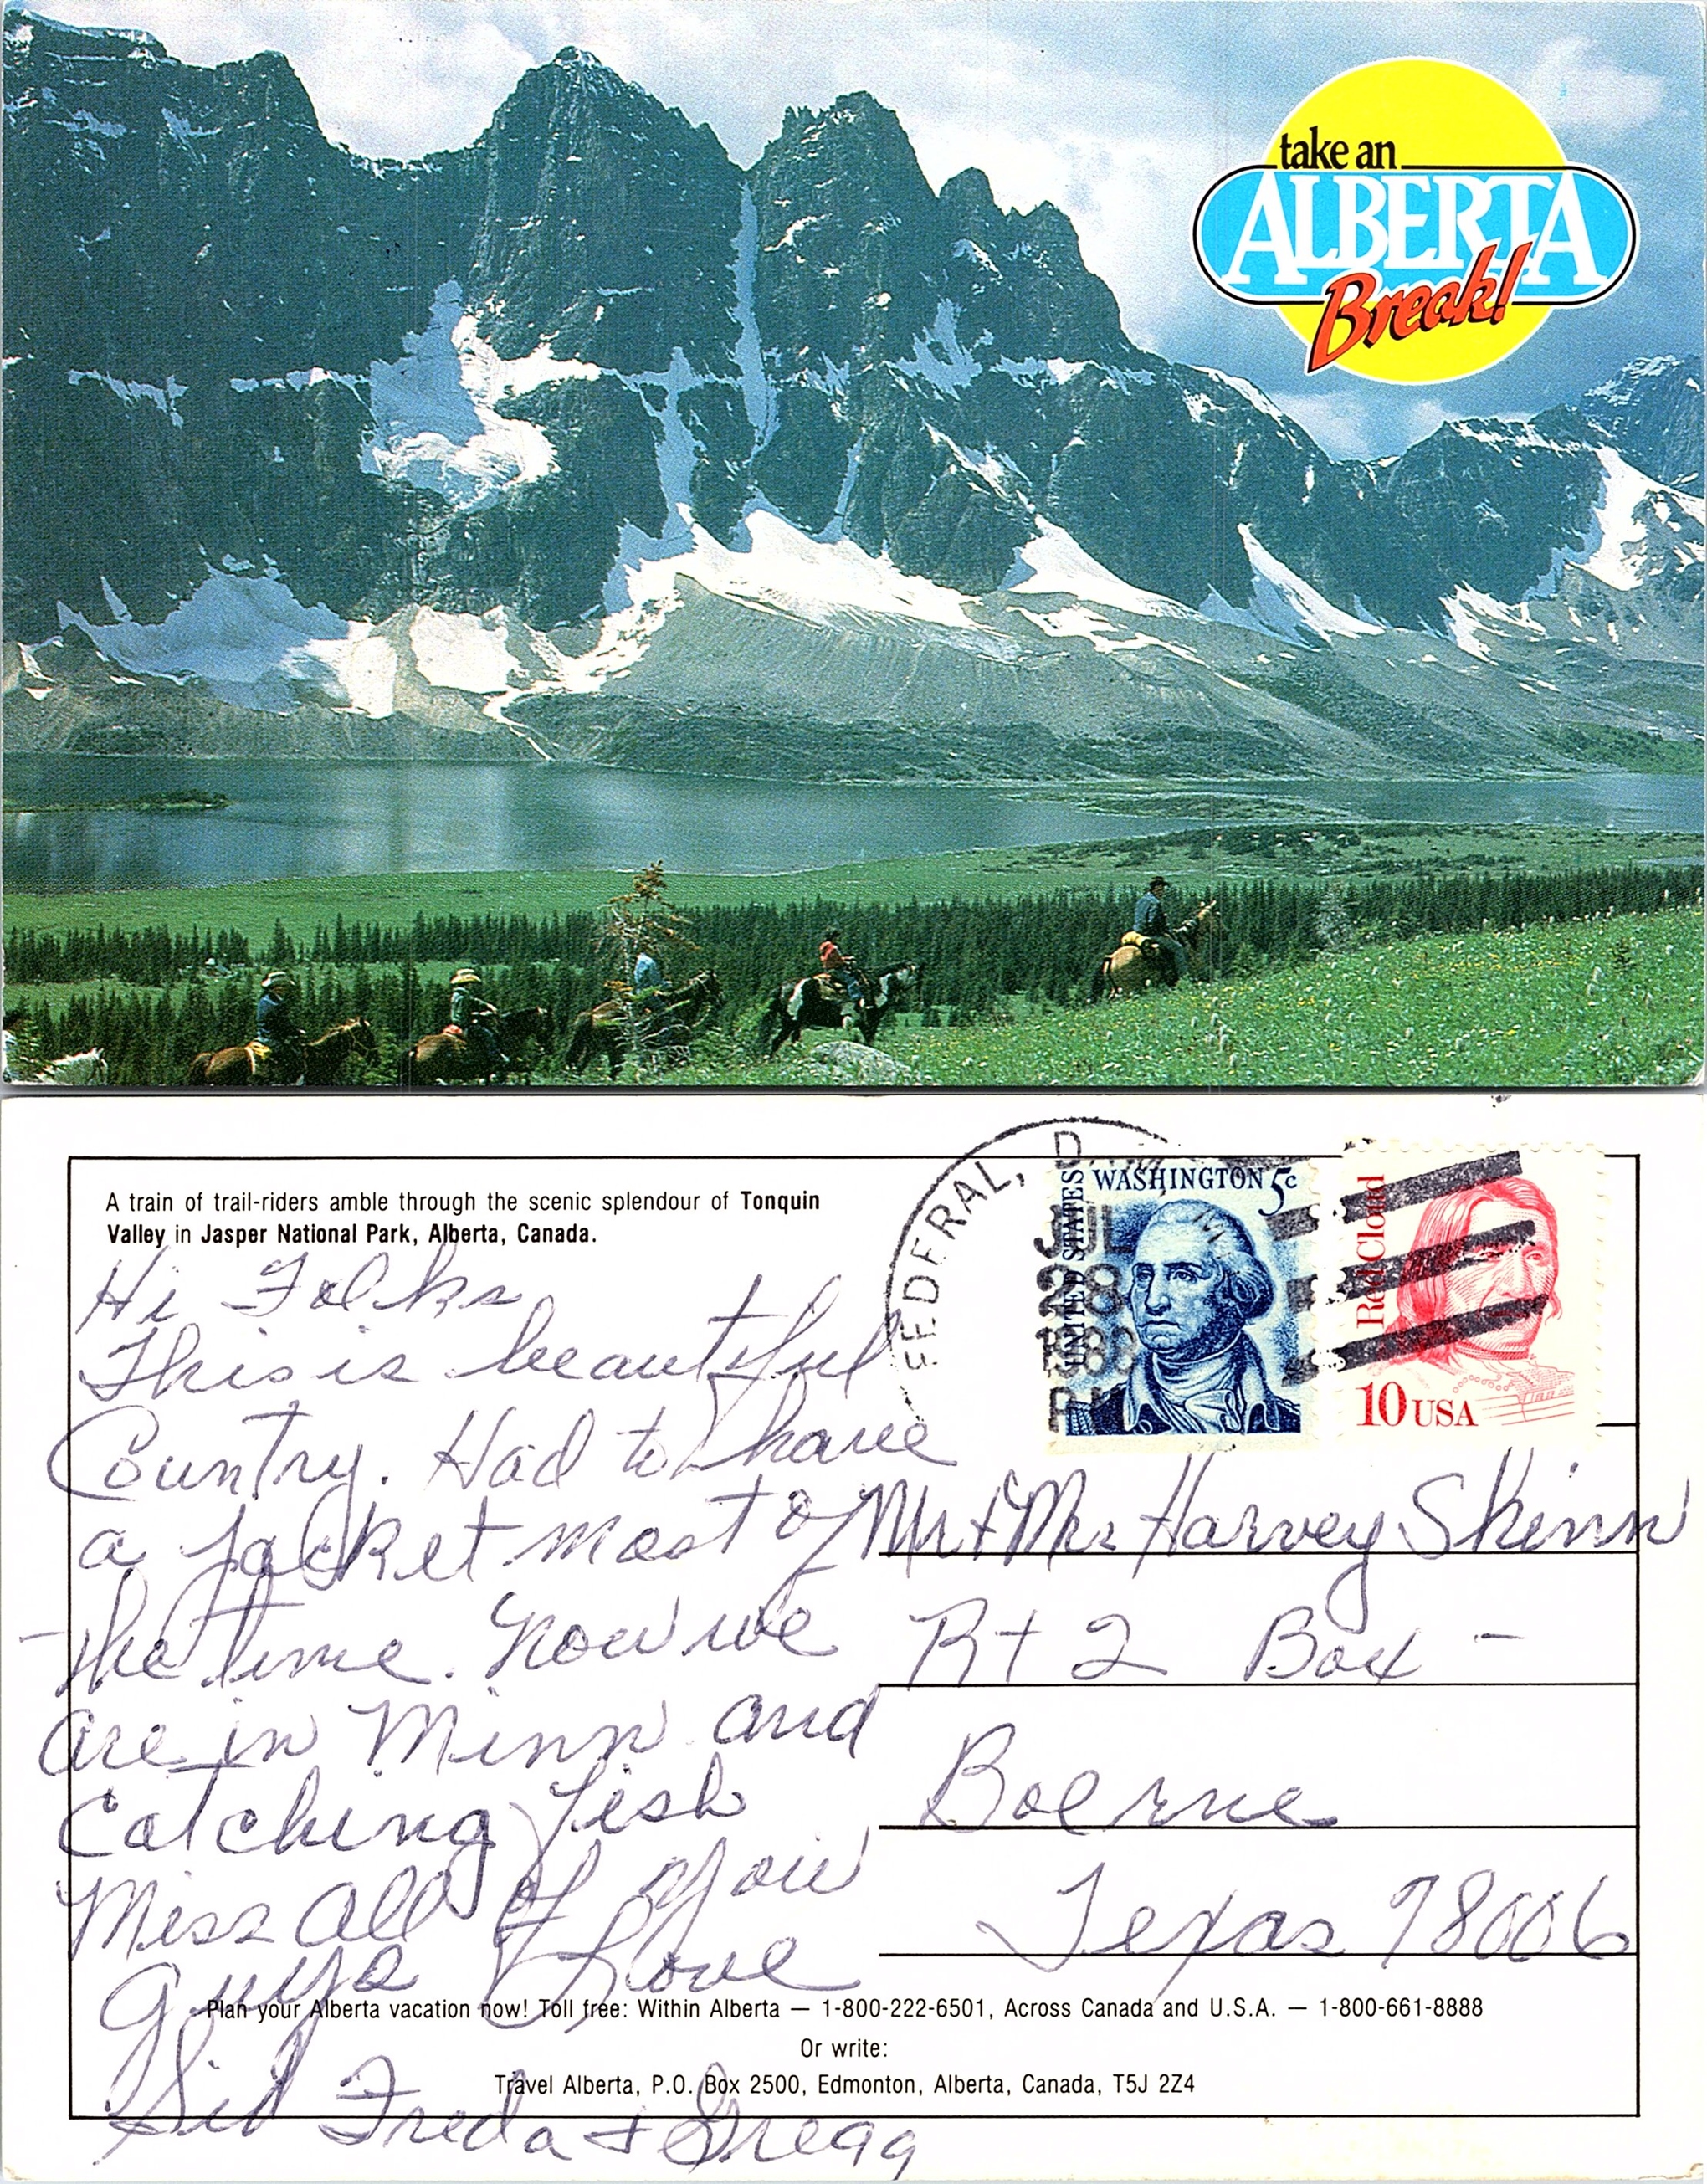 take an
ALBERTA
Break!
A train of trail-riders amble through the scenic splendour of Tonquin
Valley in Jasper National Park, Alberta, Canada.
FEDERAL, D.
JUL
28
PM
UNITED STATES
WASHINGTON 5c
Red Cloud
10 USA
Hi Folks
This is beautiful
Country. Had to have
a jacket most of
the time. Now we
are in Minn and
Catching fish
Miss all of you
guys Love
Sid Freda + Gregg
Mr + Mrs Harvey Skinn
Rt 2 Box -
Boerne
Texas 78006
Plan your Alberta vacation now! Toll free: Within Alberta — 1-800-222-6501, Across Canada and U.S.A. — 1-800-661-8888
Or write:
Travel Alberta, P.O. Box 2500, Edmonton, Alberta, Canada, T5J 2Z4